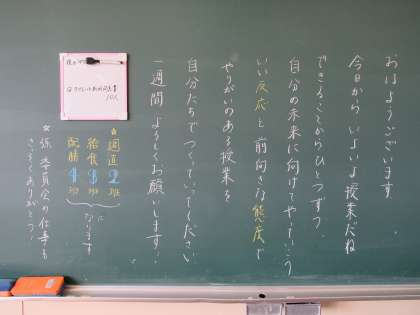 おはようございます
今日から いよいよ授業だね
できることからひとつずつ。
自分の未来に向けてやっていこう
いい反応と前向きな態度で
やりがいのある授業を
自分たちでつくっていってください
一週間 よろしくお願いします！
★週直 2班
給食 3班
配膳 4班
になります
☆係、委員会の仕事も
さっそくありがとう。